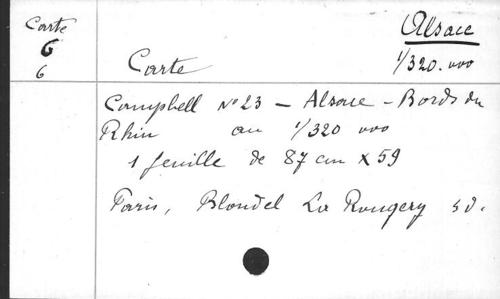 Carte
6
6
Alsace
1/320.000
Carte
Campbell N° 23 - Alsace - Bords du
Rhin au 1/320 000
1 feuille de 87 cm x 59
Paris, Blondel La Rougery s d.